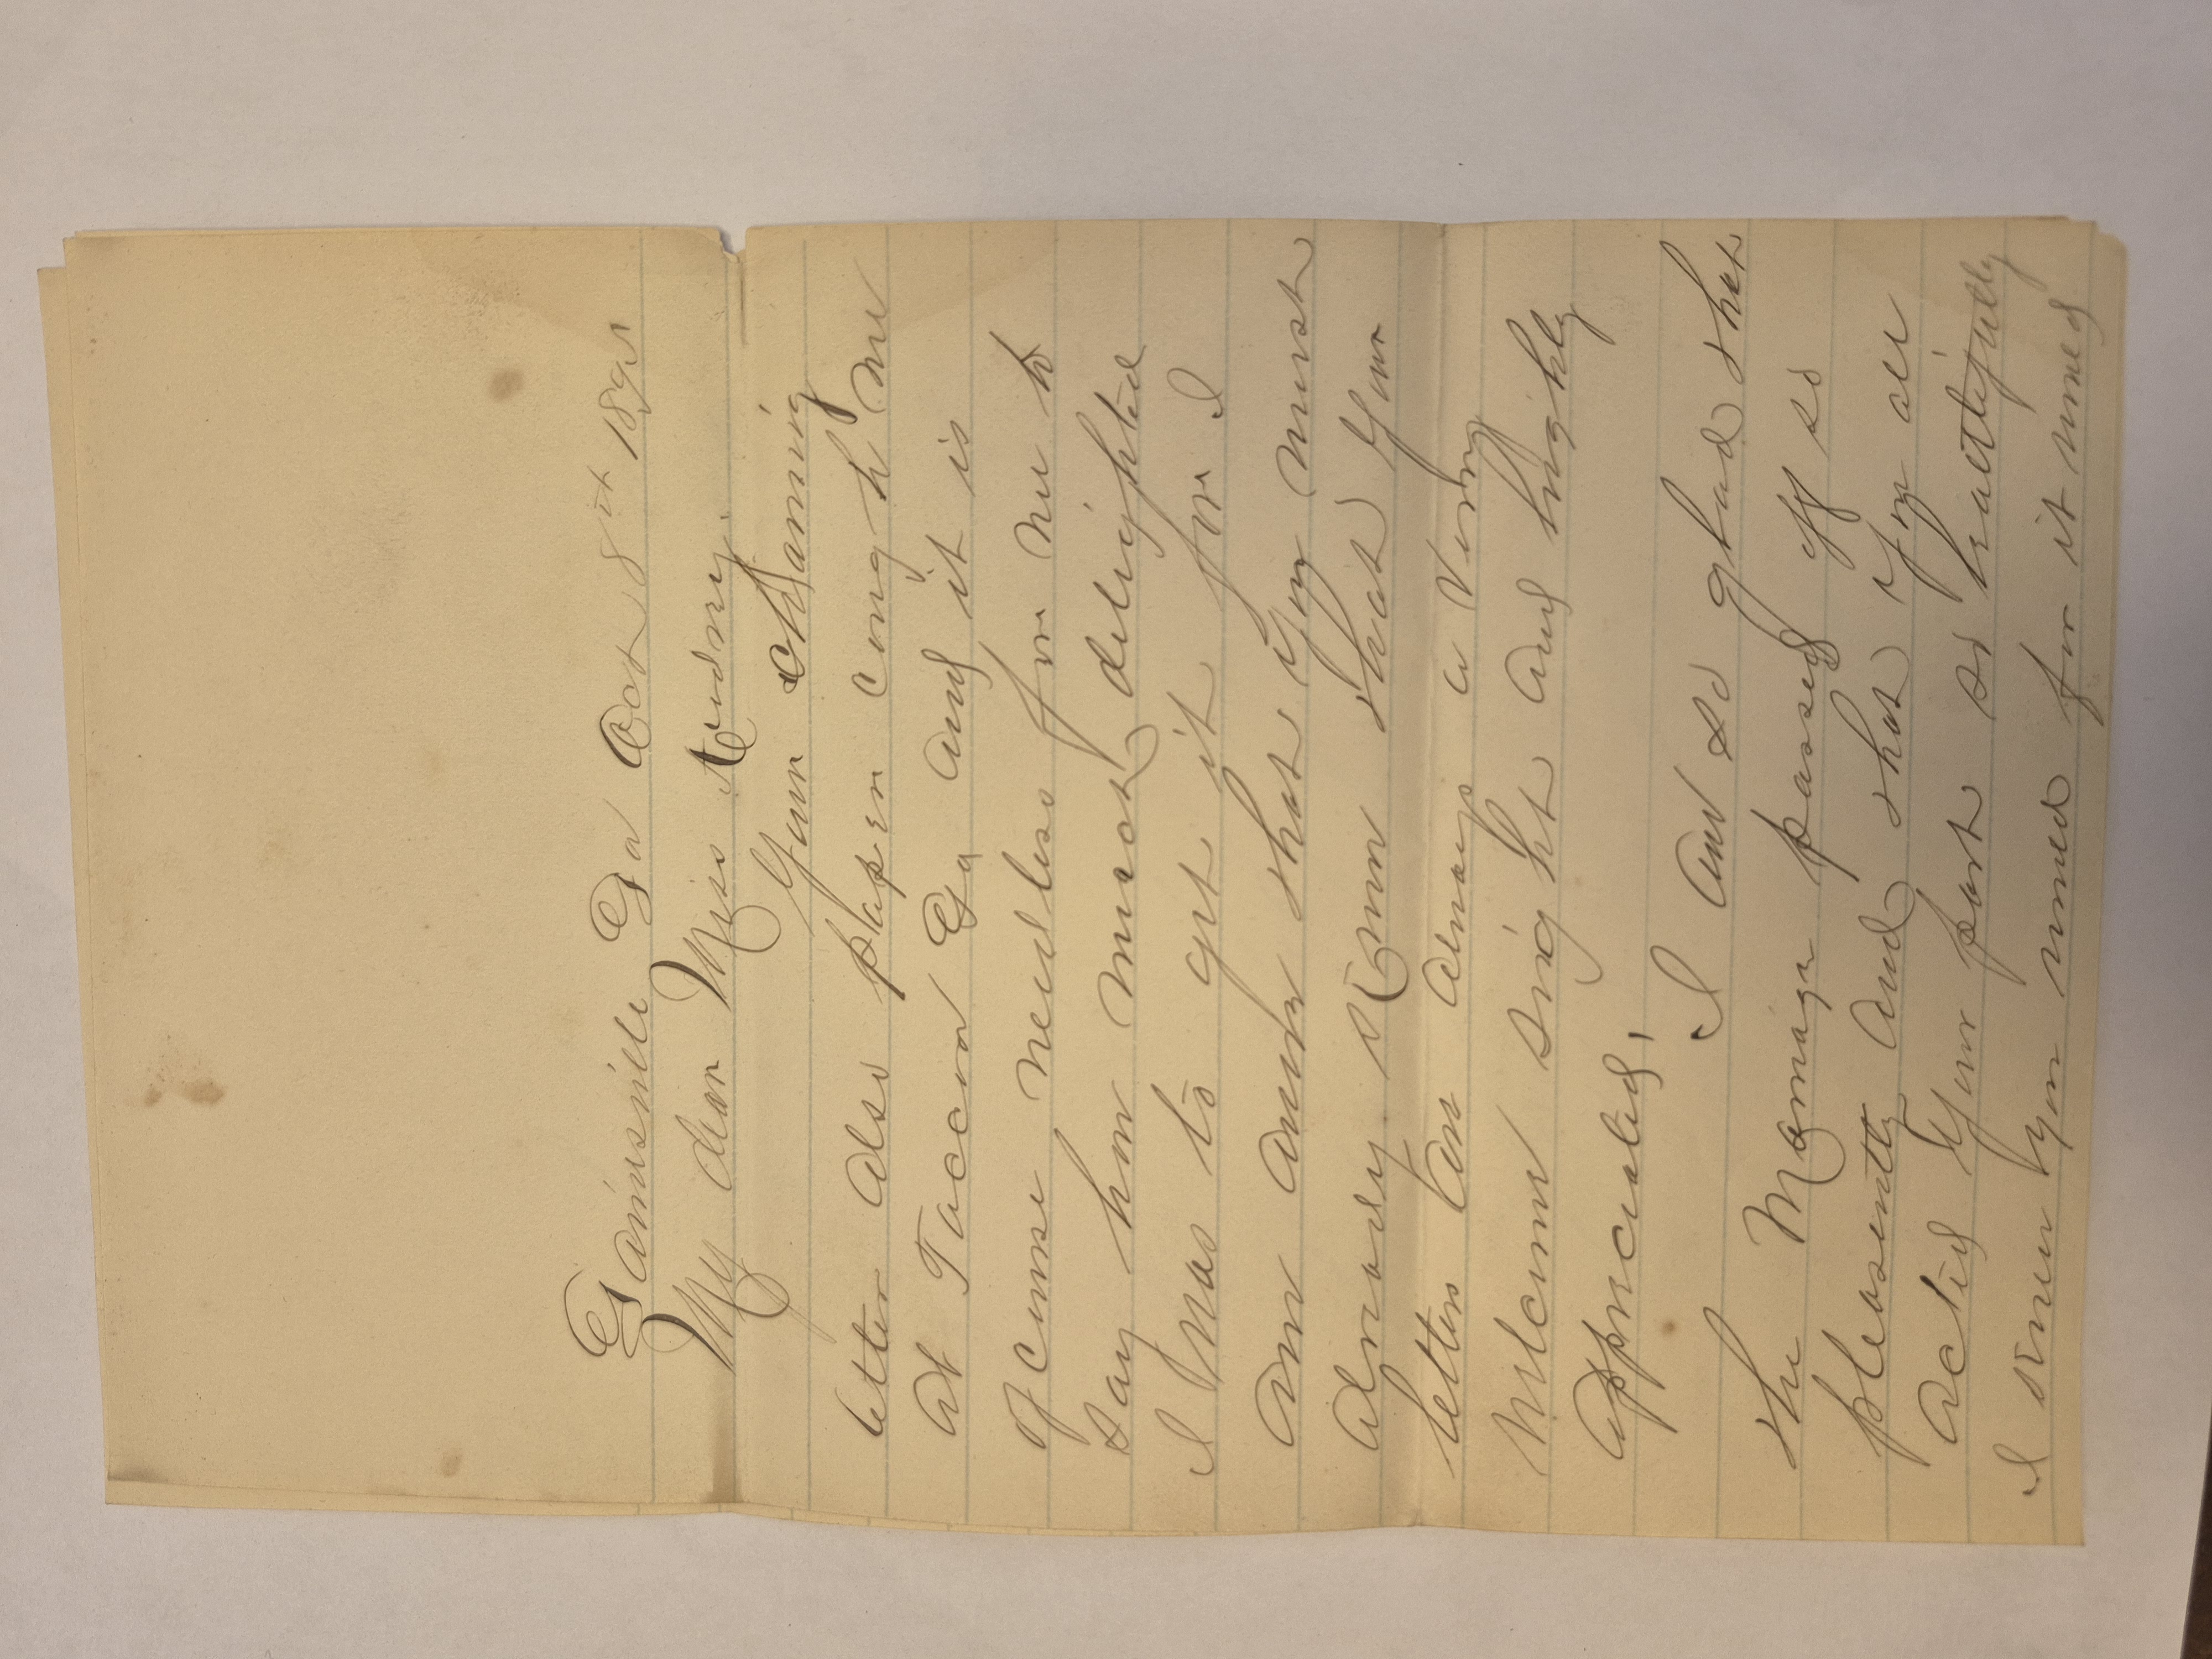 Gainesville Ga Oct 8th 189
My dear Miss Audrey.
Your charming
letter also paper caught me
at Tacoa Ga and it is
of course needless for me to
say how much delighted
I was to get it for I
am aware that you must
already know that your
letters are always a very
welcome sight and highly
appreciated,
I am so glad that
the Marriage passed off so
pleasently and that you all
acted your part so beautifully
I knew you would for it would